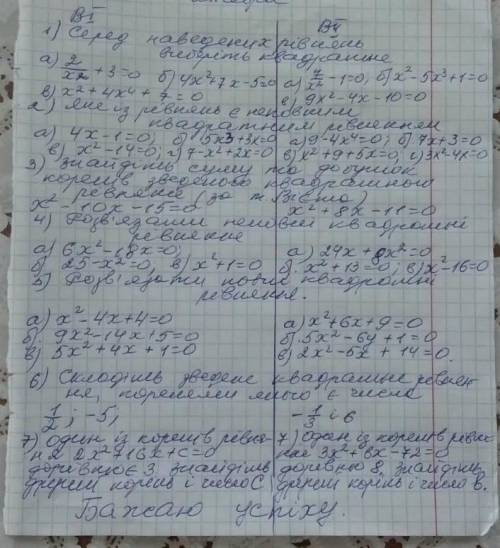 В I
В II
1) Серед наведених рівнянь
виберіть квадратне
а) 2/x2 + 3 = 0 б) 4x²+7x-5=0 а) 7/x² - 1=0; б) x²-5x³+1=0
в) x²+4x⁴+7=0 в) 9x²-4x-10=0
2) Яке із рівнянь є неповним
квадратним рівнянням
а) 4x-1=0; б) 5x3+3x=0 а) 9-4x⁴=0; б) 7x+3=0
в) x²-14=0; г) 7-x²+2x=0 в) x²+9+5x=0; г) 3x²-4x=0
3) Знайдіть суму та добуток
коренів зведеного квадратного
рівняння (за т Вієта)
x²-10x-15=0 x²+8x-11=0
4) Розв'язати неповні квадратні
рівняння
а) 6x²-18x=0; а) 24x+8x²=0
б) 25-x²=0; в) x²+1=0 б) x²+13=0; в) x²-16=0
5) Розв'язати повні квадратні
рівняння.
а) x²-4x+4=0 а) x²+6x+9=0
б) 9x²-14x+5=0 б) 5x²-6y+1=0
в) 5x²+4x+1=0 в) 2x²-5x+14=0.
6) Складіть зведене квадратне рівнян
ня, коренями якого є числа
1/2; -5; -1/3 і 6
7) Один із коренів рівня- 7) Один із коренів рівня
ня 2x²+16x+c=0 ння 3x²+вx-72=0
дорівнює 3. Знайдіть дорівню 8. Знайдіть
другий корінь і число С. другий корінь і число в.
Бажаю успіху.